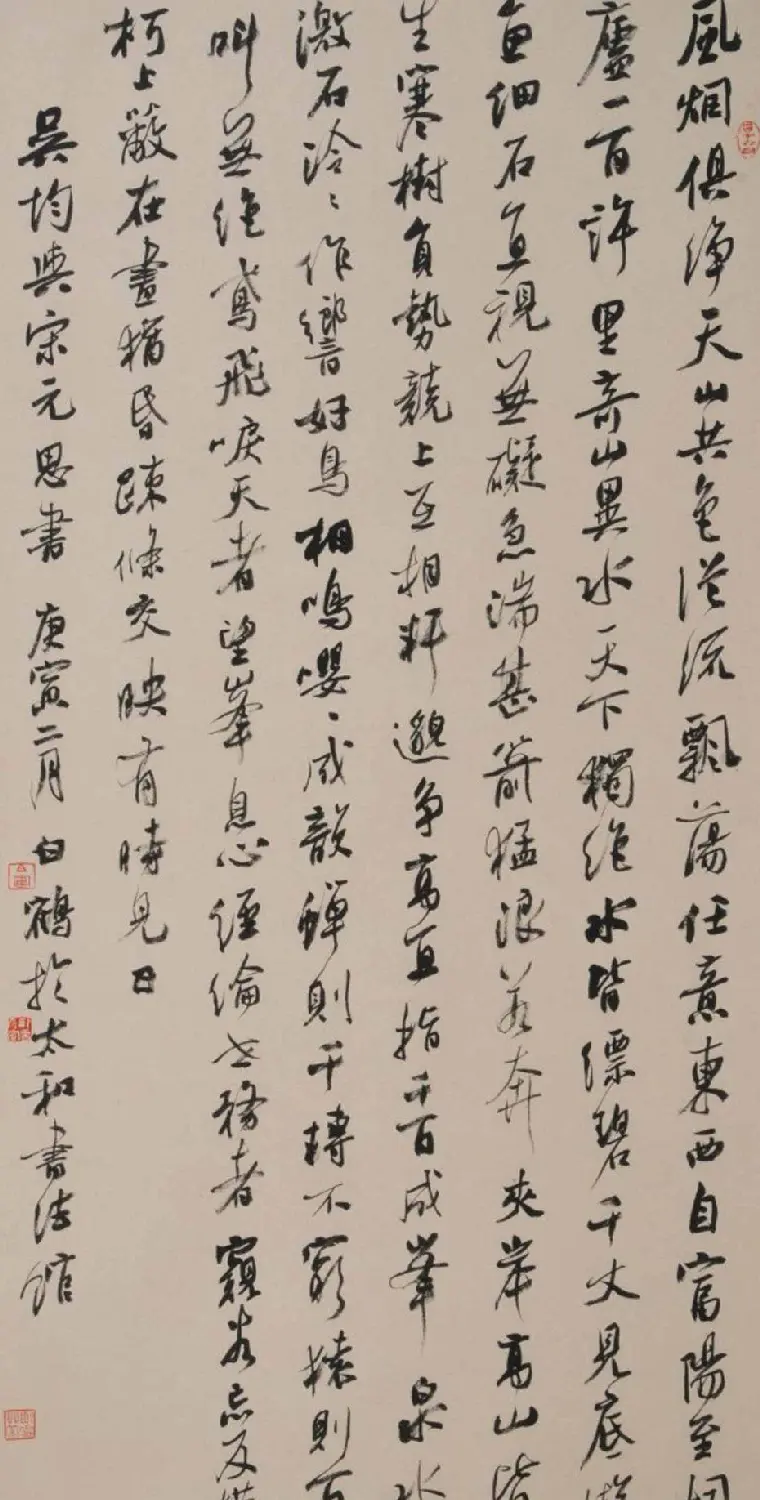 風烟俱净天山共色從流飄蕩任意東西自富陽至桐
廬一百許里奇山異水天下獨絶水皆縹碧千丈見底游
魚細石直視無礙急湍甚箭猛浪若奔夾岸高山皆
生寒樹負勢競上互相軒邈争高直指千百成峯泉水
激石泠〻作響好鳥相鳴嚶〻成韻蟬則千轉不窮猿則百
叫無絶鳶飛唳天者望峯息心經綸世務者窺谷忘反横
柯上蔽在晝猶昏疎條交映有時見日
吴均與宋元思書 庚寅二月 白鶴於太和書法館